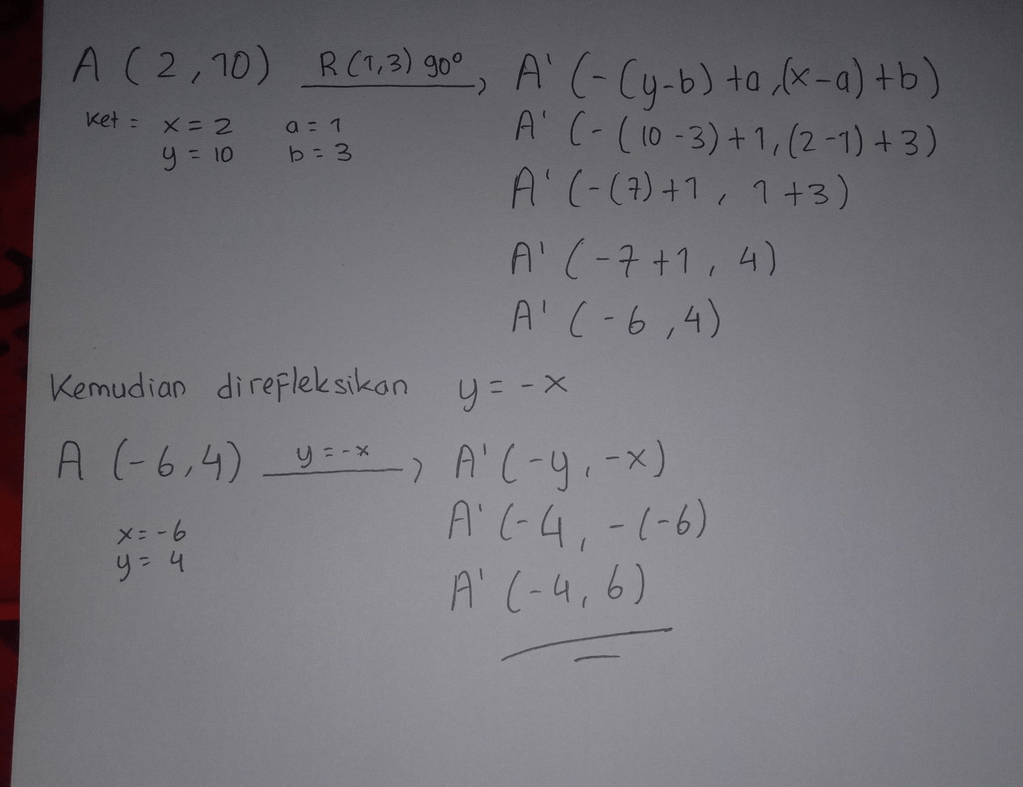 A (2,10) R(1,3) 90° → A' (-(y-b) +a ,(x-a) +b)
ket = x = 2 a = 1
y = 10 b = 3
A' (-(10 -3) +1, (2-1) +3)
A' (-(7) +1 , 1 +3)
A' (-7 +1 , 4)
A' (-6 ,4)
Kemudian direfleksikan y = -x
A (-6,4) y = -x → A' (-y , -x)
x = -6
y = 4
A' (-4 , -(-6)
A' (-4, 6)